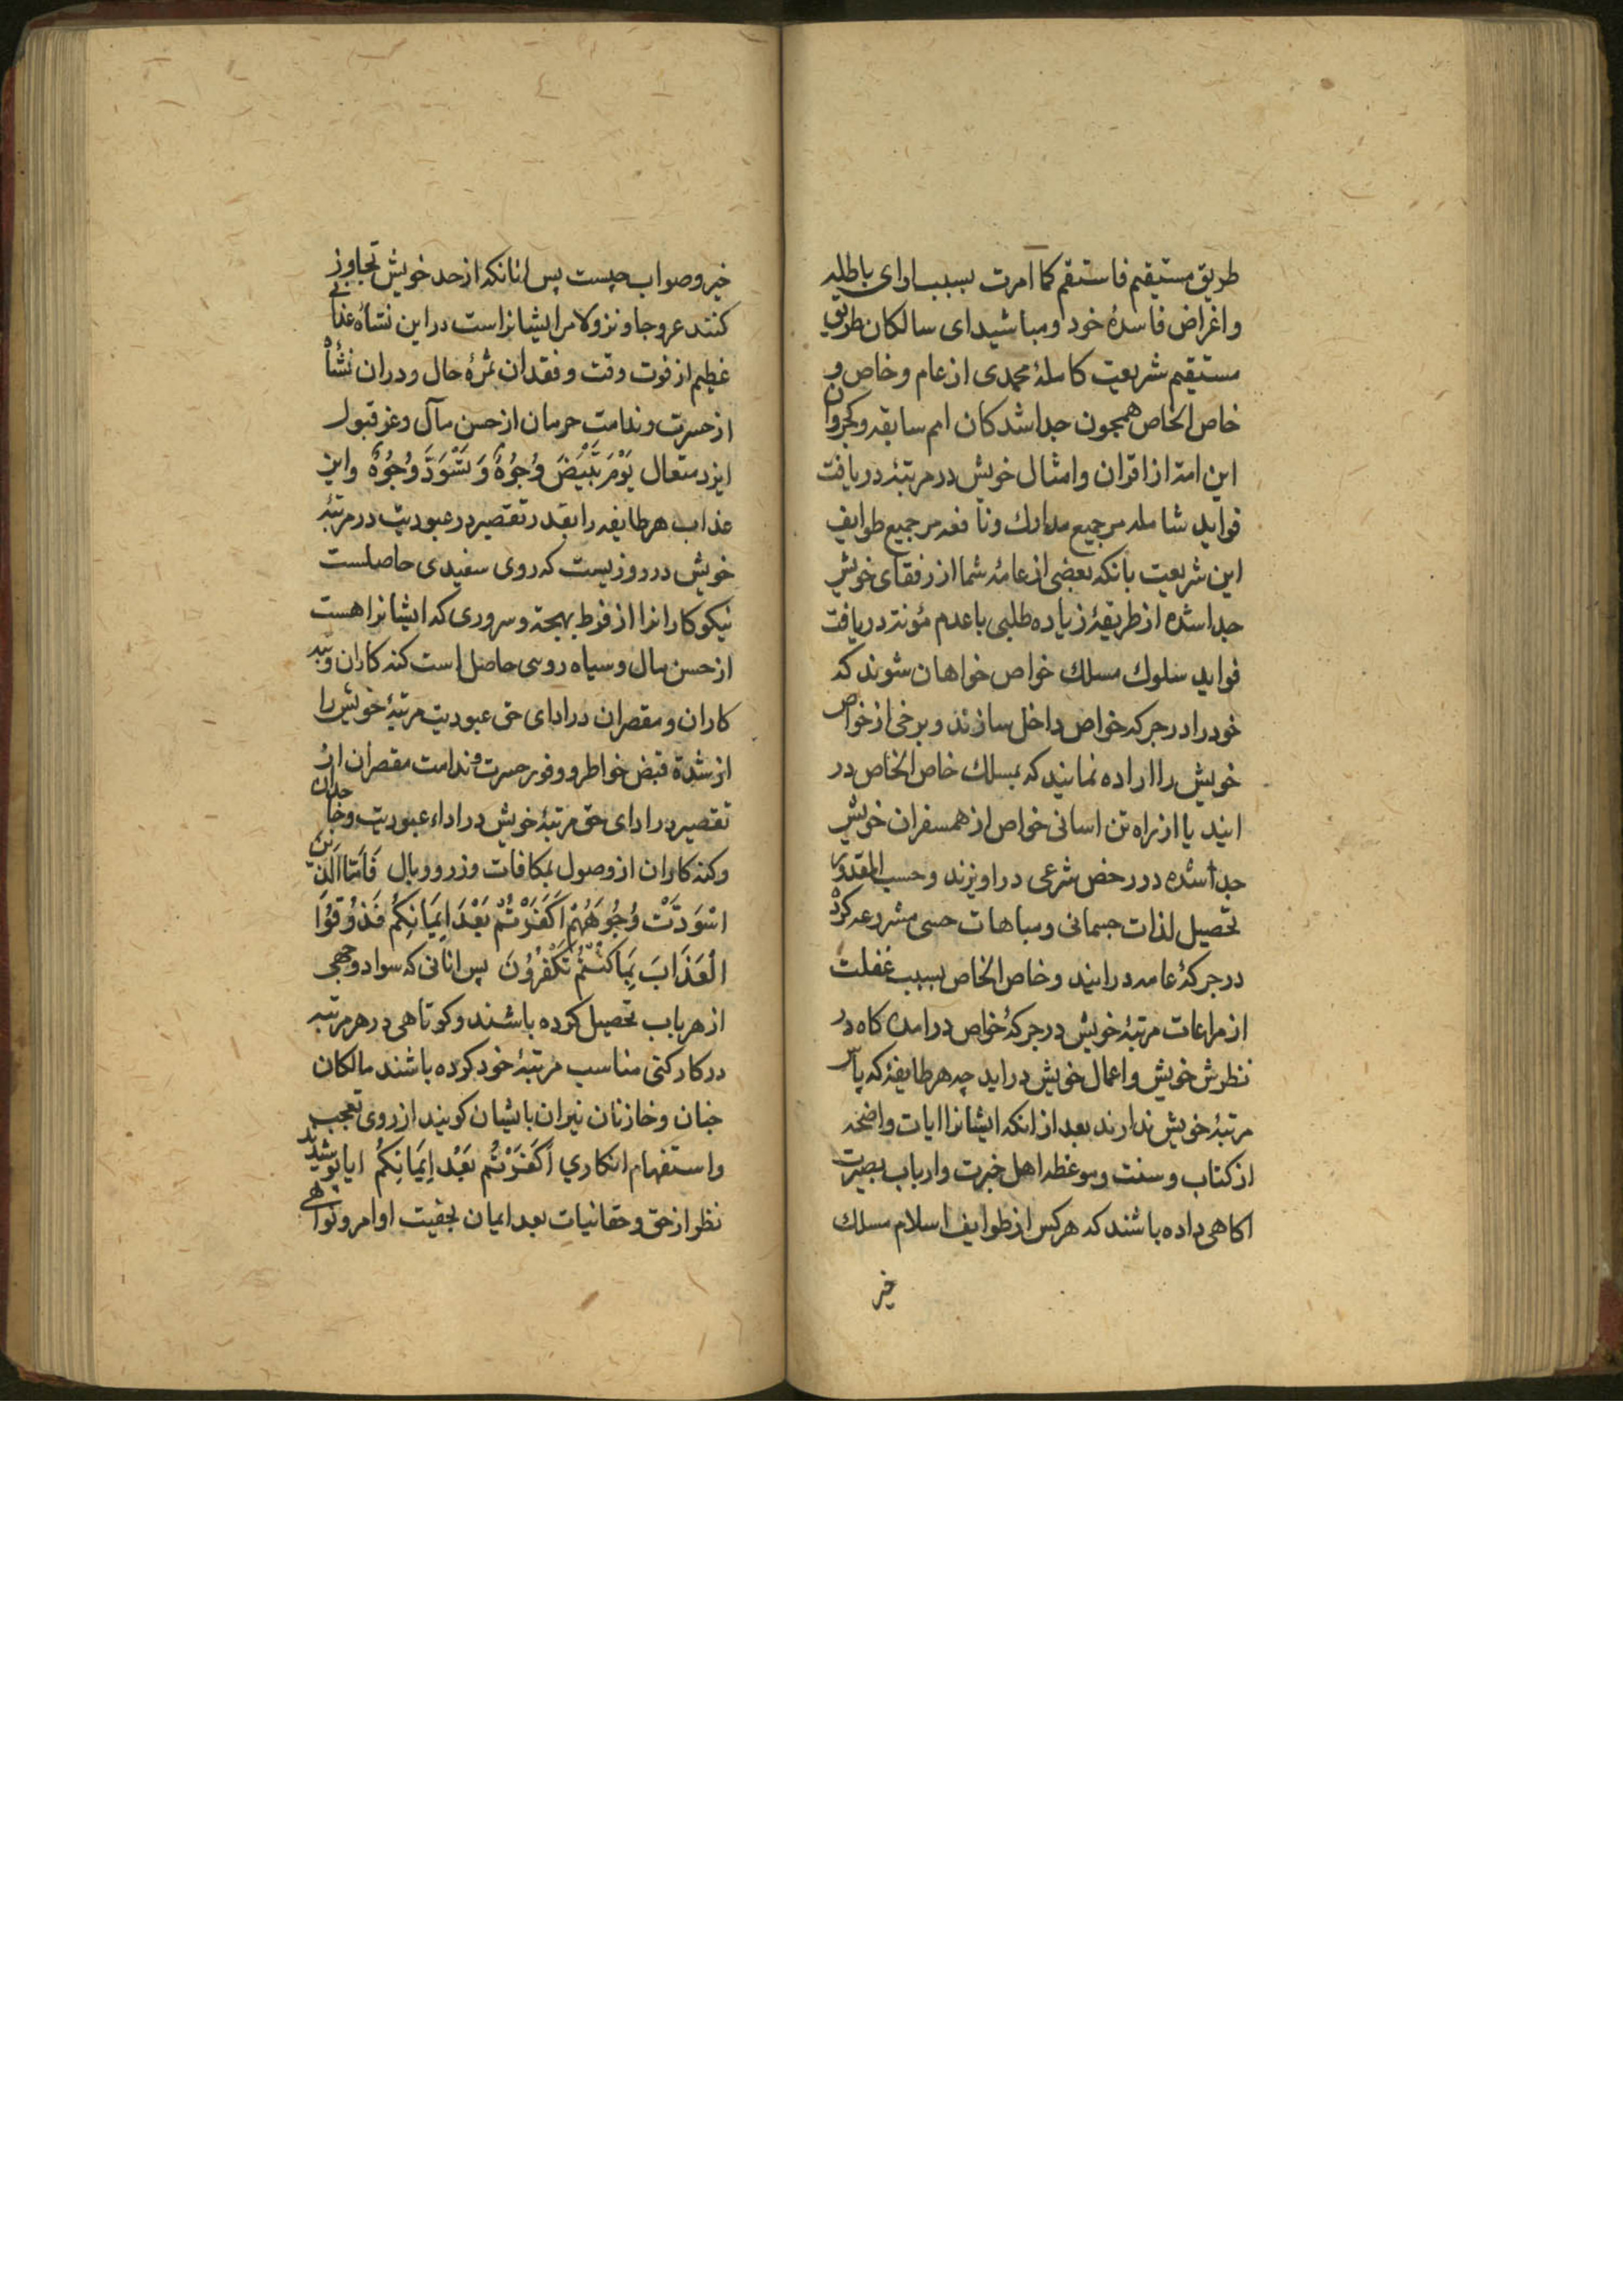 طریق مستقیم فاستقم کما امرت بسبب اراى باطله
واغراض فاسدۀ خود ومباشیدای سالکان طریق
مستقیم شریعت کاملۀ محمدی از عام وخاص و
خاص الخاص همچون جداشدکان امم سابقه وکجروان
این امة از اقران وامثال خویش در مرتبۀ دریافت
فواید شامله مر جمیع مدارك ونافعه مر جمیع طوایف
این شریعت بانکه بعضی از عامۀ شما از رفقای خویش
جدا شده از طریقۀ زیاده طلبی با عدم مؤنة دریافت
فواید سلوك مسلك خواص خواهان شوند که
خود را در جرکه خواص داخل سازند وبرخی از خواص
خویش را اراده نمایند که بمسلك خاص الخاص در
ایند یا از راه تن اسانی خواص از همسفران خویش
جدا شده در رخص شرعی دراویزند وحسب المقدور
تحصیل لذات جسمانی ومباهات حسی مشروعه کرده
در جرکۀ عامه درایند وخاص الخاص بسبب غفلت
از مراعات مرتبۀ خویش در جرکۀ خواص درامده کاه در
نظرش خویش واعمال خویش دراید چه هر طایفۀ که پاس
مرتبۀ خویش ندارند بعد از انکه ایشانرا ایات واضحه
از کتاب وسنت وموعظه اهل خبرت وارباب بصیرت
اکاهی داده باشند که هر کس از طوایف اسلام مسلك
خیر
خیر وصواب چیست پس انانکه از حد خویش تجاوز
کنند عروجا ونزولا مر ایشانراست در این نشأه عذابی
عظیم از فوت وقت وفقدان ثمرۀ حال ودران نشأه
از حسرت وندامت حرمان از حسن مآل وعز قبول
ایزد متعال يَوْمَ تَبْيَضُّ وُجُوهٌ وَتَسْوَدُّ وُجُوهٌ واین
عذاب هر طایفه را بقدر تقصیر در عبودیت در مرتبۀ
خویش در روزیست که روی سفیدی حاصلست
نیکوکارانرا از فرط بهجة وسروری که ایشانرا هست
از حسن مال وسیاه روسی حاصل است کنه کاران وتبه
کاران ومقصران در ادای حق عبودیت مرتبۀ خویش را
از شدة قبض خواطر ووفور حسرت وندامت مقصران از
تقصیر در ادای حق مرتبۀ خویش در اداء عبودیت وخجالت
وکنه کاران از وصول بمکافات وزر ووبال فَأَمَّا الَّذِينَ
اسْوَدَّتْ وُجُوهُهُمْ أَكَفَرْتُمْ بَعْدَ إِيمَانِكُمْ فَذُوقُوا
الْعَذَابَ بِمَا كُنْتُمْ تَكْفُرُونَ پس انانی که سواد وجهی
از هر باب تحصیل کرده باشند وکوتاهی در هر مرتبه
در کارکنی مناسب مرتبۀ خود کرده باشند مالکان
جنان وخازنان نیران باایشان کویند از روی تعجب
واستفهام انکاری أَكَفَرْتُمْ بَعْدَ إِيمَانِكُمْ ایا پوشیدید
نظر از حق وحقانیات بعد ایمان بحقیت اوامر ونواهی